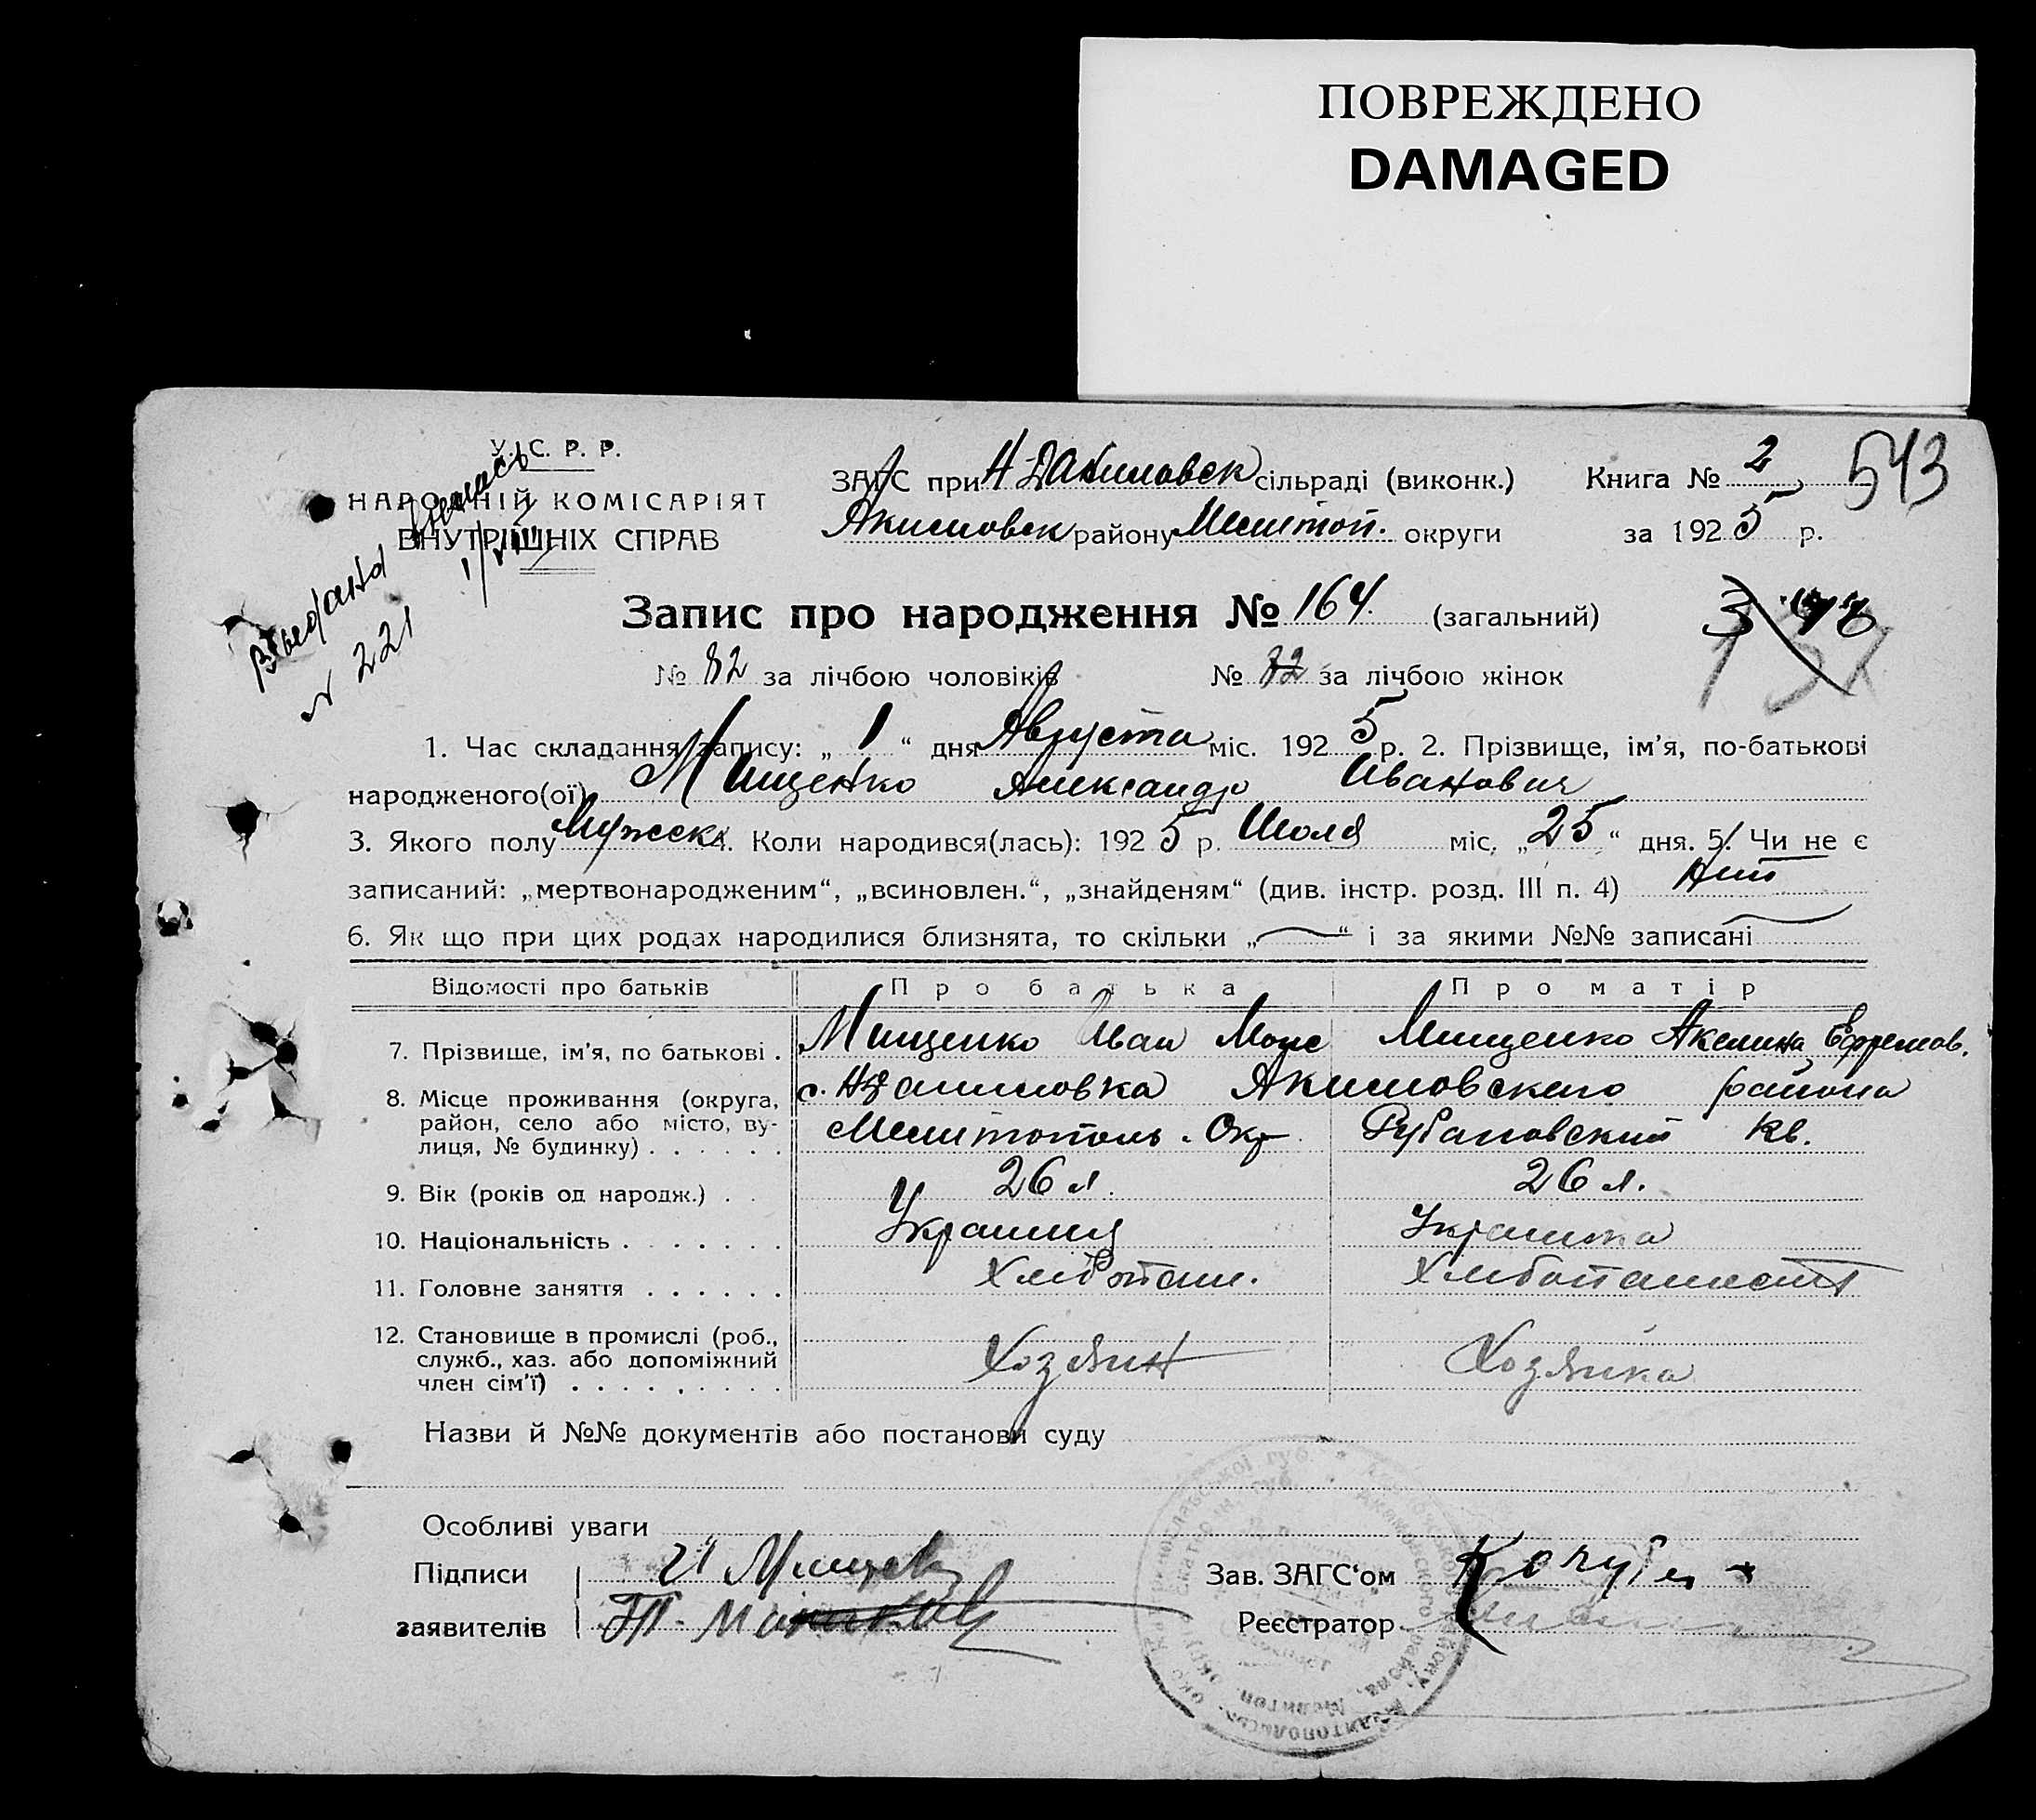 ПОВРЕЖДЕНО
DAMAGED
У. С. Р. Р.
НАРОДНІЙ КОМІСАРІЯТ
ВНУТРІШНІХ СПРАВ
Выдана
N 221
ЗАГС при Н-Даниловск сільраді (виконк.)
Акимовск району Мелитоп. округи
Книга № 2
за 1925 р.
543
Запис про народження № 164. (загальний)
№ 82 за лічбою чоловіків № 82 за лічбою жінок
1. Час складання запису: „ 1 “ дня Августа міс. 1925 р. 2. Прізвище, ім’я, по-батькові
народженого(ої) Мищенко Александр Иванович
3. Якого полу Мужск 4. Коли народився(лась): 1925 р. Июля міс. „25“ дня. 5. Чи не є
записаний: „мертвонародженим“, „всиновлен.“, „знайденям“ (див. інстр. розд. III п. 4) Нет
6. Як що при цих родах народилися близнята, то скільки „ “ і за якими №№ записані
Відомості про батьків Про батька Про матір
7. Прізвище, ім’я, по батькові . Мищенко Иван Моис Мищенко Акелина Ефремов.
8. Місце проживання (округа, с. Н-Даниловка Акимовского района
район, село або місто, ву- Мелитополь. Окр Рубановский кв.
лиця, № будинку) . . . . . .
9. Вік (років од народж.) . . 26 л. 26 л.
10. Національність . . . . . . . Украинец Украинка
11. Головне заняття . . . . . . Хлебопаш. Хлебопашест
12. Становище в промислі (роб., Хозяин Хозяйка
служб., хаз. або допоміжний
член сім’ї) . . . . . . . . .
Назви й №№ документів або постанови суду
Особливі уваги
Підписи И Мищен
заявителів
Зав. ЗАГС‘ом Кочубей
Реєстратор